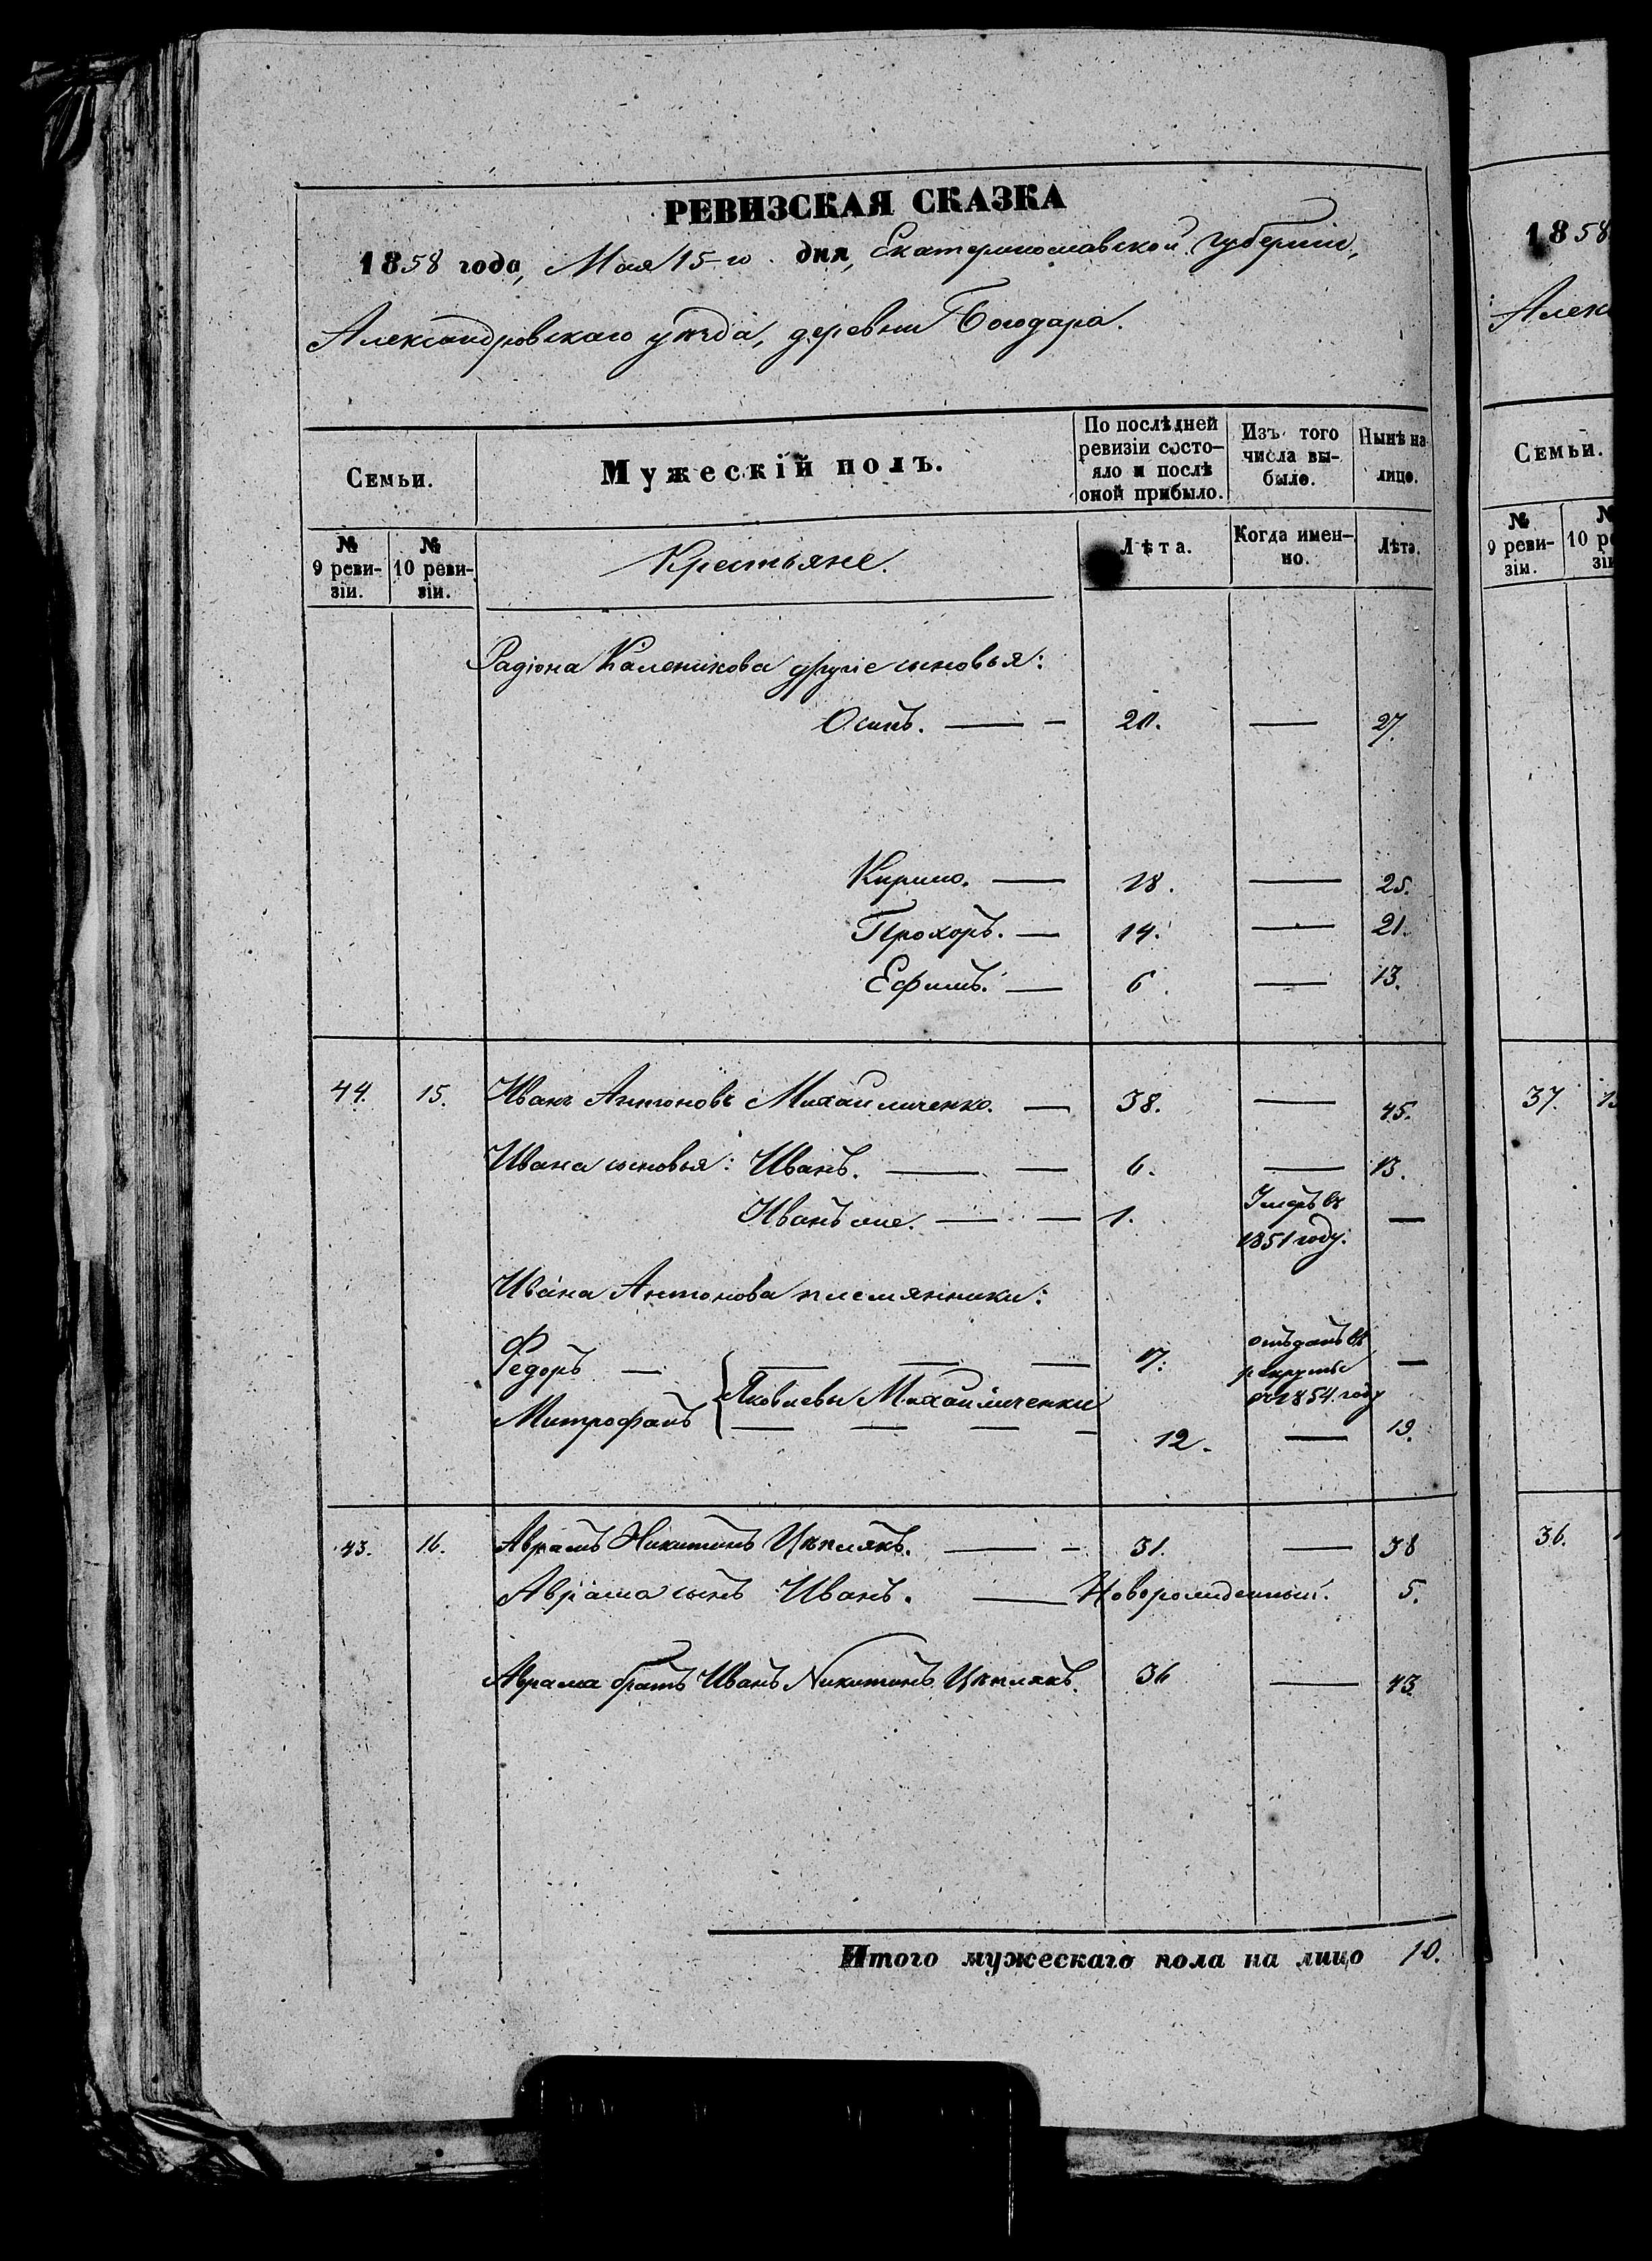 РЕВИЗСКАЯ СКАЗКА
1858 года, Мая 15-го дня, Екатеринославской губернии,
Александровскаго уѣзда, деревни Богодара.
Семьи. Мужескій полъ. По послѣдней ревизіи состо-яло и послѣ оной прибыло. Изъ того числа вы-было. Нынѣ на лицо.
№ 9 реви-зіи. № 10 реви-зіи. Крестьяне. Лѣта. Когда имен-но. Лѣта.
Радіона Каленикова другіе сыновья:
Осипъ. — 20. — 27.
Кирило. — 18. — 25.
Прохоръ. — 14. — 21.
Ефимъ. — 6. — 13.
44. 15. Иванъ Антоновъ Михайличенко. — 38. — 45.
Ивана сыновья: Иванъ. — 6. — 13.
Иванъ же. — 1. Умеръ въ —
1851 году.
Ивана Антонова племянники:
Федоръ — 17. отъданъ въ —
рекруты
въ 1854 году
Яковлевы Михайличенки
Митрофанъ — 12. — 19.
43. 16. Аврамъ Никитинъ Цѣплякъ. — 31. — 38
Аврама сынъ Иванъ. — Новорожденный. 5.
Аврама братъ Иванъ Никитинъ Цѣплякъ. 36 — 43
Итого мужескаго пола на лицо 10.
1858
Алек
Семьи.
№ 9 реви-зіи.
37.
36.